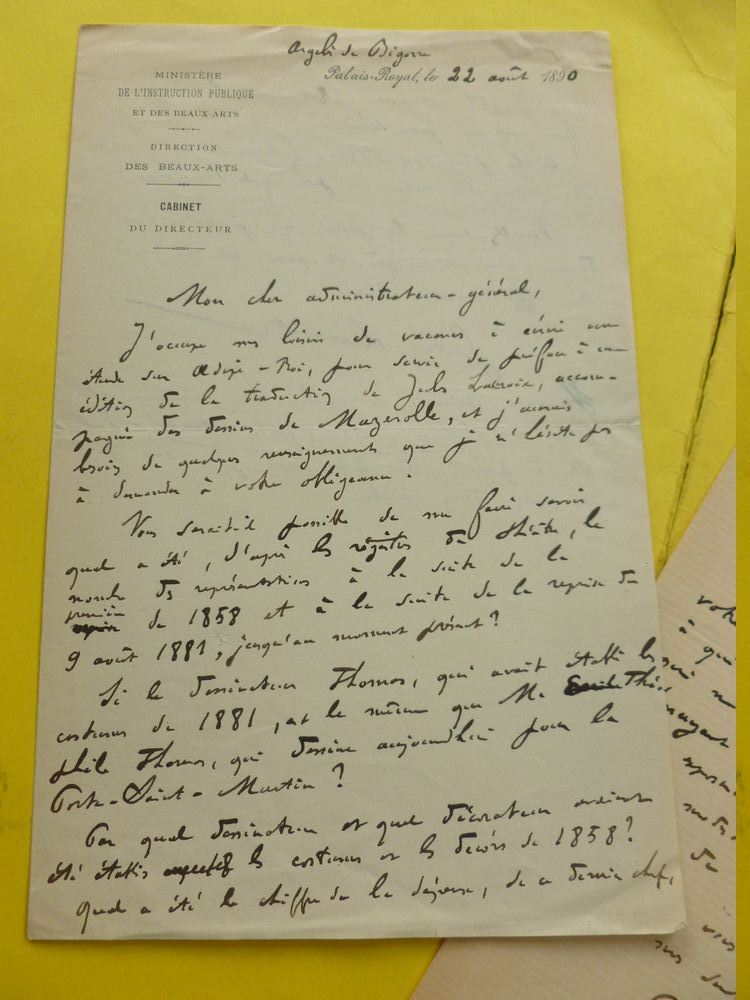 Argelès de Bigorre
MINISTÈRE
DE L'INSTRUCTION PUBLIQUE
ET DES BEAUX-ARTS
DIRECTION
DES BEAUX-ARTS
CABINET
DU DIRECTEUR
Palais-Royal, le 22 août 1890
Mon cher administrateur-général,
J'occupe mes loisirs de vacances à écrire une
étude sur Œdipe-Roi, pour servir de préface à une
édition de la traduction de Jules Lacroix, accom-
pagnée des dessins de Mazerolle, et j'aurais
besoin de quelques renseignements que je n'hésite pas
à demander à votre obligeance.
Vous serait-il possible de me faire savoir
quel a été, d'après les registres du théâtre, le
nombre des représentations à la suite de la
première de 1858 et à la suite de la reprise du
9 août 1881, jusqu'au moment présent?
Si le dessinateur Thomas, qui avait établi les
costumes de 1881, est le même que M. Théo
phile Thomas, qui dessine aujourd'hui pour la
Porte-Saint-Martin?
Par quel dessinateur et quel décorateur avaient
été établis les costumes et les décors de 1858?
Quel a été le chiffre de la dépense, de ce dernier chef,
votre
à qui